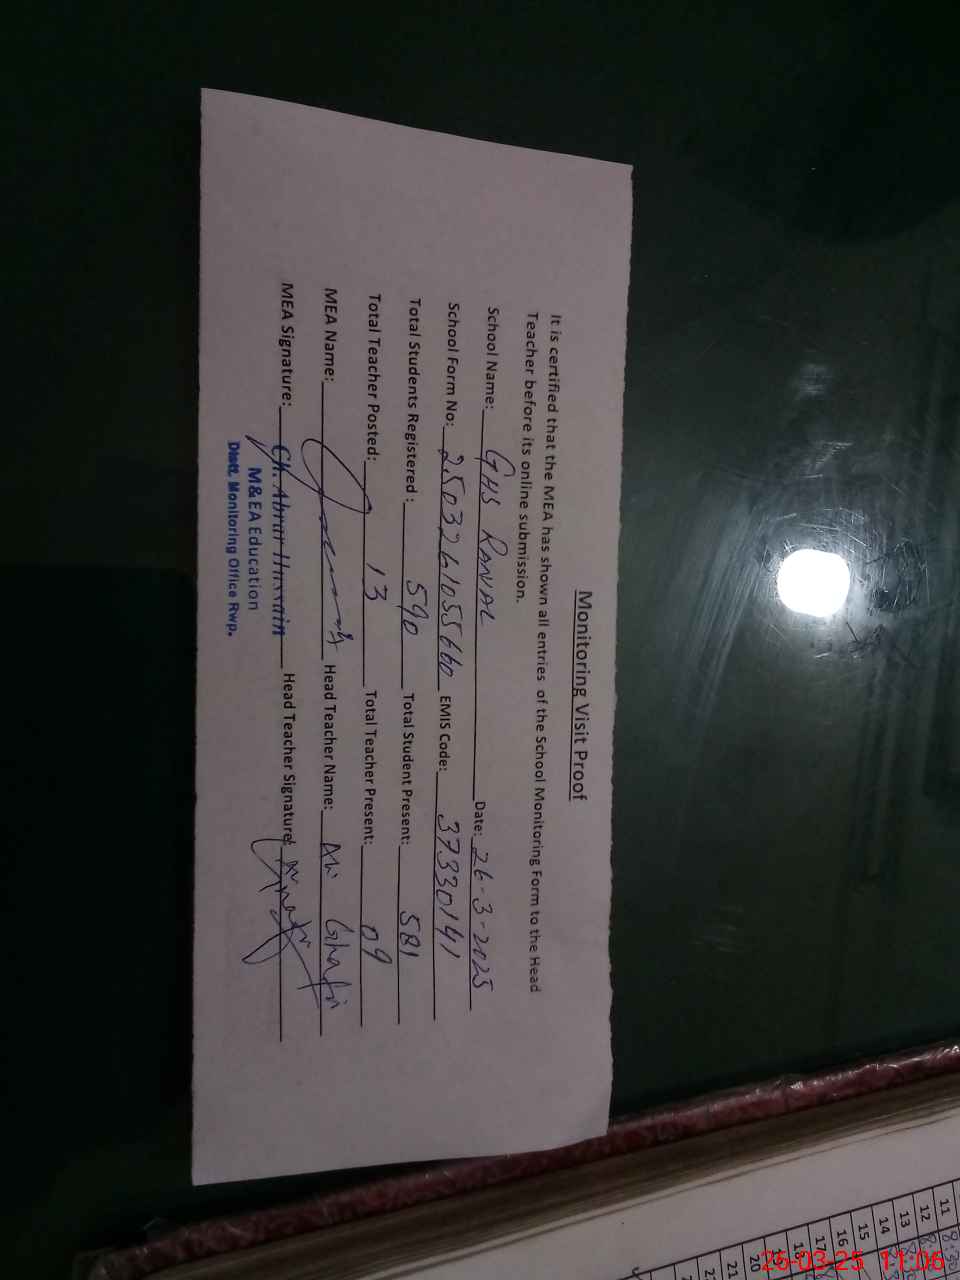 Monitoring Visit Proof
It is certified that the MEA has shown all entries of the School Monitoring Form to the Head
Teacher before its online submission.
School Name: GHS RANIAL Date: 26-3-2025
School Form No: 2503261055660 EMIS Code: 37330141
Total Students Registered: 590 Total Student Present: 581
Total Teacher Posted: 13 Total Teacher Present: 09
MEA Name: Head Teacher Name: Ali Ghafir
MEA Signature: Ch. Abrar Hussain Head Teacher Signature:
M&EA Education
Distt. Monitoring Office Rwp.
11
12
13
14
15
16
17
18
20
21
22
26-03-25 11:06